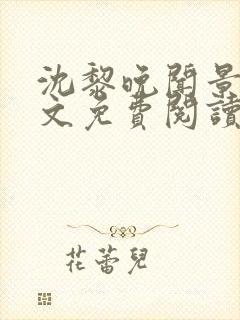 沈黎晚聞景
文免費閱讀
花蕾兒